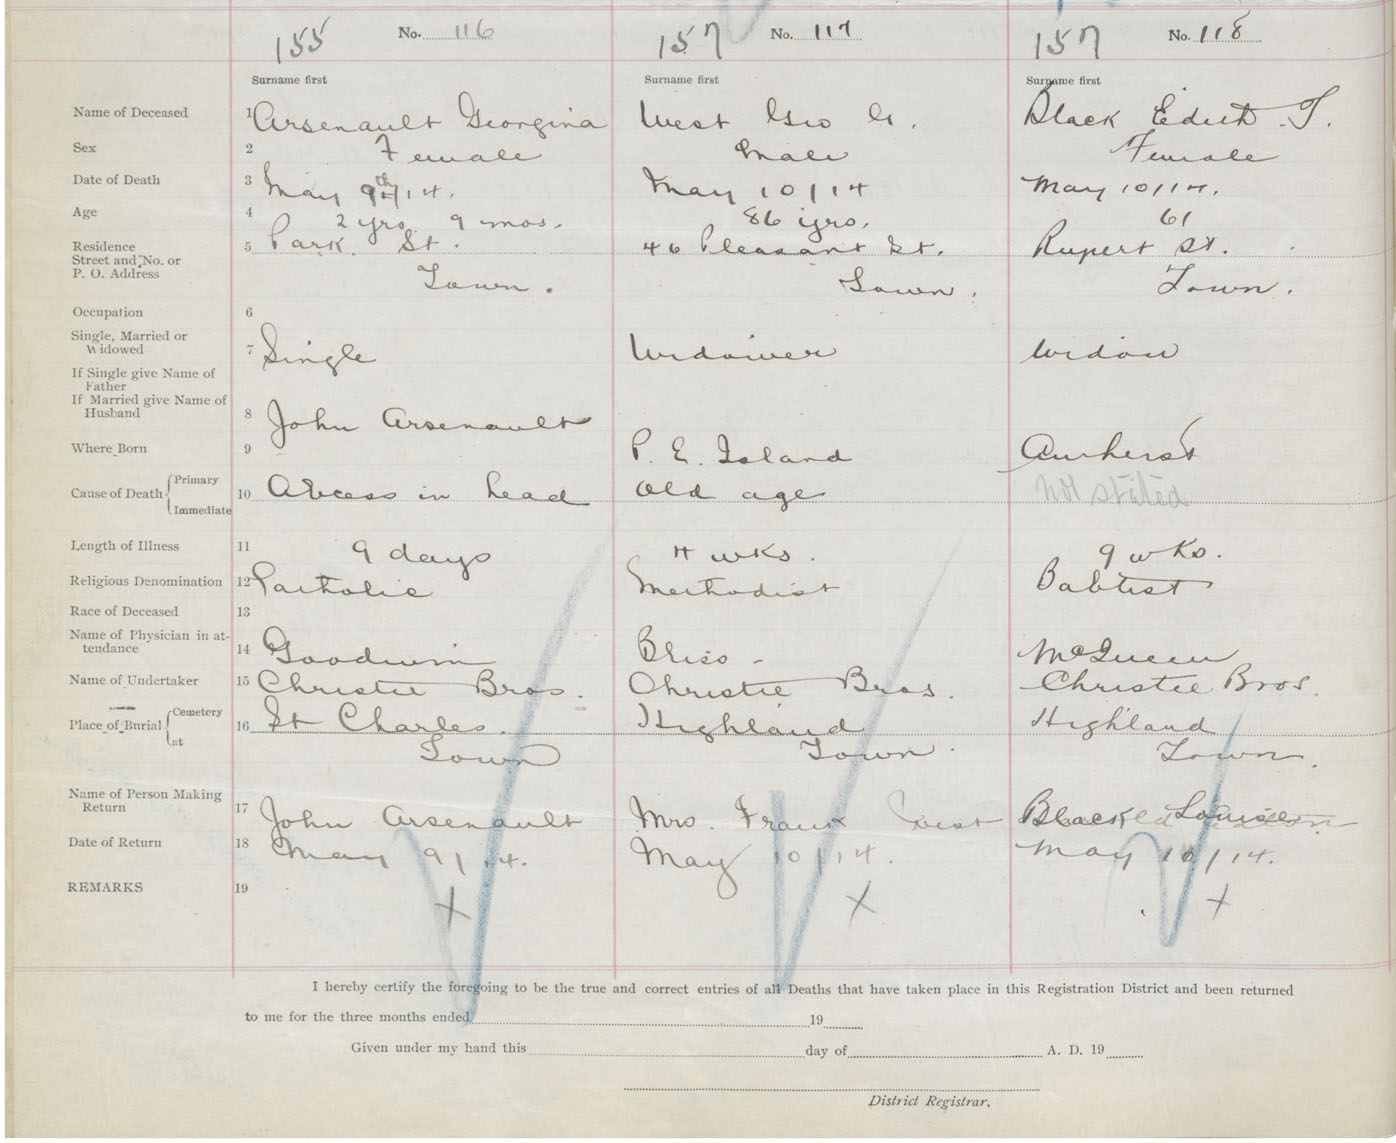 155 No. 116 157 No. 117 157 No. 118
Surname first Surname first Surname first
Name of Deceased 1 Arsenault Georgina West Geo G. Black Edith T.
Sex 2 Female Male Female
Date of Death 3 May 9th/14. May 10/14 May 10/14.
Age 4 2 yrs 9 mos. 86 yrs. 61
Residence 5 Park St. 46 Pleasant St. Rupert St.
Street and No. or
P. O. Address Town. Town. Town.
Occupation 6
Single, Married or
Widowed 7 Single Widower Widow
If Single give Name of
Father
If Married give Name of
Husband 8 John Arsenault
Where Born 9 P. E. Island Amherst
Primary
Cause of Death 10 Abcess in head Old age Not stated
Immediate
Length of Illness 11 9 days 4 wks. 9 wks.
Religious Denomination 12 Catholic Methodist Babtist
Race of Deceased 13
Name of Physician in at-
tendance 14 Goodwin Bliss - McQueen
Name of Undertaker 15 Christie Bros. Christie Bros. Christie Bros.
Cemetery
Place of Burial 16 St Charles. Highland Highland
at Town Town. Town.
Name of Person Making
Return 17 John Arsenault Mrs. Frank West Black Louise
Date of Return 18 May 9/14. May 10/14. May 10/14.
REMARKS 19 X X X
I hereby certify the foregoing to be the true and correct entries of all Deaths that have taken place in this Registration District and been returned
to me for the three months ended 19
Given under my hand this day of A. D. 19
District Registrar.